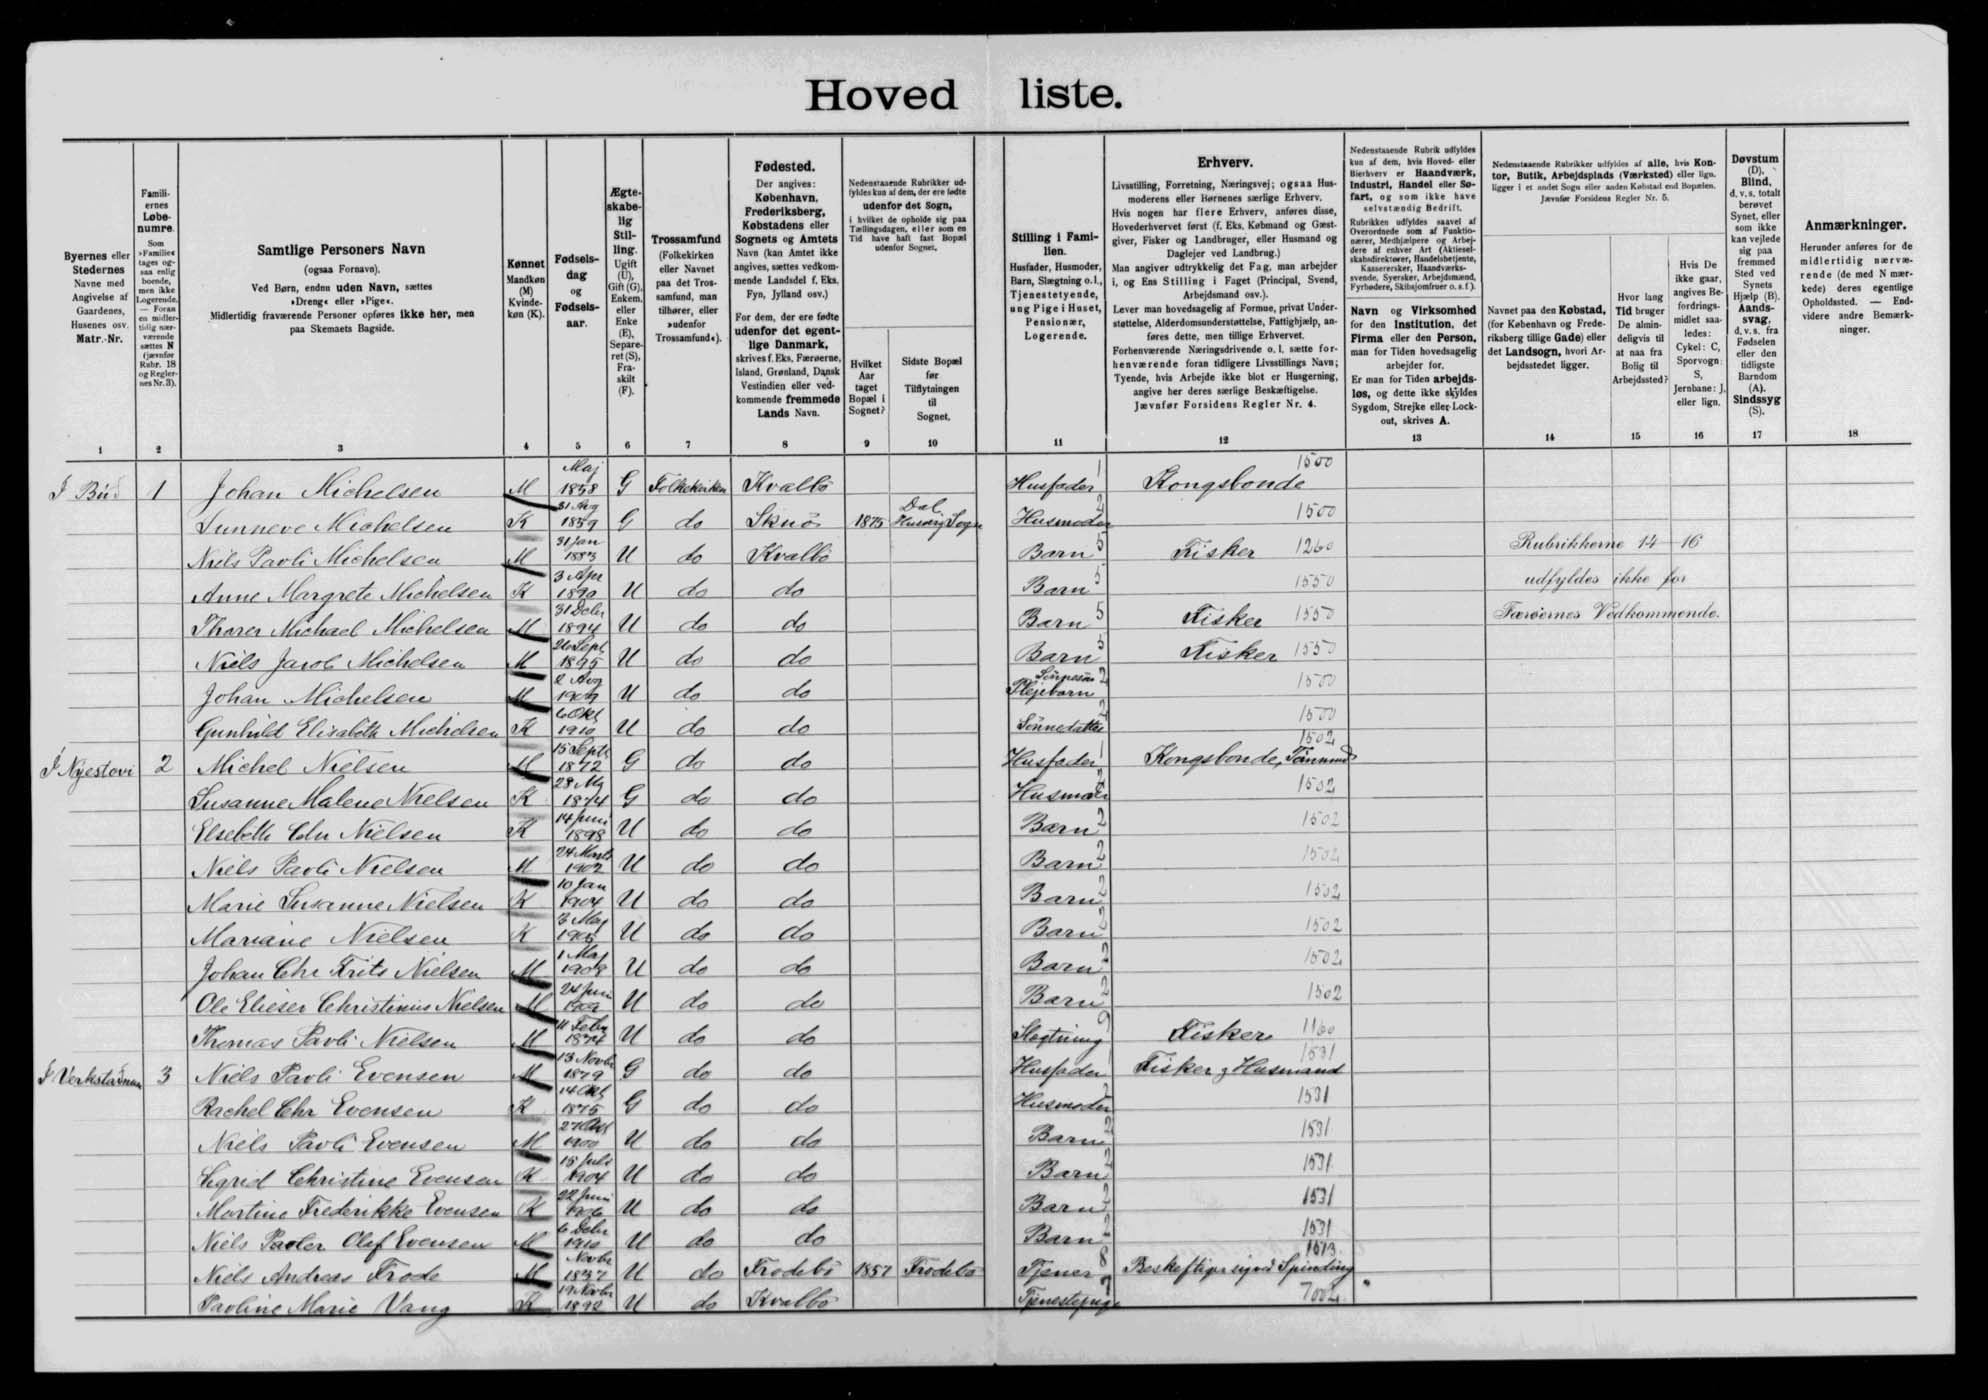 Hoved liste.
Byernes eller
Stedernes
Navne med
Angivelse af
Gaardenes,
Husenes osv.
Matr.-Nr.
Famili-
ernes
Løbe-
numre.
Som
»Familie«
tages og-
saa enlig
boende,
men ikke
Logerende.
— Foran
en midler-
tidig nær-
værende
sættes N
(jævnfør
Rubr. 18
og Regler-
nes Nr. 3).
Samtlige Personers Navn
(ogsaa Fornavn).
Ved Børn, endnu uden Navn, sættes
»Dreng« eller »Pige«.
Midlertidig fraværende Personer opføres ikke her, men
paa Skemaets Bagside.
Kønnet
Mandkøn
(M)
Kvinde-
køn (K).
Fødsels-
dag
og
Fødsels-
aar.
Ægte-
skabe-
lig
Stil-
ling.
Ugift
(U),
Gift (G),
Enkem.
eller
Enke
(E),
Separe-
ret (S),
Fra-
skilt
(F).
Trossamfund
(Folkekirken
eller Navnet
paa det Tros-
samfund, man
tilhører, eller
»udenfor
Trossamfund«).
Fødested.
Der angives:
København,
Frederiksberg,
Købstadens eller
Sognets og Amtets
Navn (kan Amtet ikke
angives, sættes vedkom-
mende Landsdel f. Eks.
Fyn, Jylland osv.)
For dem, der ere fødte
udenfor det egent-
lige Danmark,
skrives f. Eks. Færøerne,
Island, Grønland, Dansk
Vestindien eller ved-
kommende fremmede
Lands Navn.
Nedenstaaende Rubrikker ud-
fyldes kun af dem, der ere fødte
udenfor det Sogn,
i hvilket de opholde sig paa
Tællingsdagen, eller som en
Tid have haft fast Bopæl
udenfor Sognet.
Hvilket
Aar
taget
Bopæl i
Sognet?
Sidste Bopæl
før
Tilflytningen
til
Sognet.
Stilling i Fami-
lien.
Husfader, Husmoder,
Barn, Slægtning o. l.,
Tjenestetyende,
ung Pige i Huset,
Pensionær,
Logerende.
Erhverv.
Livsstilling, Forretning, Næringsvej; ogsaa Hus-
moderens eller Børnenes særlige Erhverv.
Hvis nogen har flere Erhverv, anføres disse,
Hovederhvervet først (f. Eks. Købmand og Gæst-
giver, Fisker og Landbruger, eller Husmand og
Daglejer ved Landbrug.)
Man angiver udtrykkelig det Fag, man arbejder
i, og Ens Stilling i Faget (Principal, Svend,
Arbejdsmand osv.).
Lever man hovedsagelig af Formue, privat Under-
støttelse, Alderdomsunderstøttelse, Fattighjælp, an-
føres dette, men tillige Erhvervet.
Forhenværende Næringsdrivende o. l. sætte for-
henværende foran tidligere Livsstillings Navn;
Tyende, hvis Arbejde ikke blot er Husgerning,
angive her deres særlige Beskæftigelse.
Jævnfør Forsidens Regler Nr. 4.
Nedenstaaende Rubrik udfyldes
kun af dem, hvis Hoved- eller
Bierhverv er Haandværk,
Industri, Handel eller Sø-
fart, og som ikke have
selvstændig Bedrift.
Rubrikken udfyldes saavel af
Overordnede som af Funktio-
nærer, Medhjælpere og Arbej-
dere af enhver Art (Aktiesel-
skabsdirektører, Handelsbetjente,
Kasserersker, Haandværks-
svende, Syersker, Arbejdsmænd,
Fyrbødere, Skibsjomfruer o. s. f.).
Navn og Virksomhed
for den Institution, det
Firma eller den Person,
man for Tiden hovedsagelig
arbejder for.
Er man for Tiden arbejds-
løs, og dette ikke skyldes
Sygdom, Strejke eller Lock-
out, skrives A.
Nedenstaaende Rubrikker udfyldes af alle, hvis Kon-
tor, Butik, Arbejdsplads (Værksted) eller lign.
ligger i et andet Sogn eller anden Købstad end Bopælen.
Jævnfør Forsidens Regler Nr. 5.
Navnet paa den Købstad,
(for København og Frede-
riksberg tillige Gade) eller
det Landsogn, hvori Ar-
bejdsstedet ligger.
Hvor lang
Tid bruger
De almin-
deligvis til
at naa fra
Bolig til
Arbejdssted?
Hvis De
ikke gaar,
angives Be-
fordrings-
midlet saa-
ledes:
Cykel: C,
Sporvogn:
S,
Jernbane: J,
eller lign.
Døvstum
(D),
Blind,
d. v. s. totalt
berøvet
Synet, eller
som ikke
kan vejlede
sig paa
fremmed
Sted ved
Synets
Hjælp (B).
Aands-
svag,
d. v. s. fra
Fødselen
eller den
tidligste
Barndom
(A).
Sindssyg
(S).
Anmærkninger.
Herunder anføres for de
midlertidig nærvæ-
rende (de med N mær-
kede) deres egentlige
Opholdssted. — End-
videre andre Bemærk-
ninger.
1 2 3 4 5 6 7 8 9 10 11 12 13 14 15 16 17 18
1 Johan Michelsen M Maj 1858 G Folkekirken Kvalbø Husfader 1 Kongsbonde 1500
Sunneve Michelsen K 31 Aug 1859 G do Skuø 1875 Dal Husavig Sogn Husmoder 2 1500
Niels Pavli Michelsen M 31 Jan 1883 U do Kvalbø Barn 5 Fisker 1260 Rubrikkerne 14-16
Anne Margrete Michelsen K 3 Apr 1890 U do do Barn 5 1550 udfyldes ikke for
Thorer Michael Michelsen M 31 Decbr 1894 U do do Barn 5 Fisker 1550 Færøernes Vedkommende.
Niels Jacob Michelsen M 26 Sept 1895 U do do Barn 5 Fisker 1550
Johan Michelsen M 2 Aug 1909 U do do Plejebarn 2 1500
Gunhild Elisabeth Michelsen K 6 Okt 1910 U do do Sønnedatter 2 1500
I Nyestovi 2 Michel Nielsen M 15 Sept 1872 G do do Husfader 1 Kongsbonde, 1502
Susanne Malene Nielsen K 28 Maj 1874 G do do Husmoder 2 1502
Elsebeth Chr Nielsen K 14 Juni 1898 U do do Barn 2 1502
Niels Pavli Nielsen M 24 Marts 1902 U do do Barn 2 1502
Marie Susanne Nielsen K 10 Jan 1904 U do do Barn 2 1502
Mariane Nielsen K 3 Maj 1905 U do do Barn 2 1502
Johan Chr Frits Nielsen M 1 Maj 1908 U do do Barn 2 1502
Ole Elieser Christinus Nielsen M 24 Juni 1909 U do do Barn 2 1502
Thomas Pavli Nielsen M 11 Febr 1874 U do do Slægtning 9 Fisker 1160
3 Niels Pavli Evensen M 13 Novbr 1879 G do do Husfader 1 Fisker & Husmand 1531
Rachel Chr Evensen K 14 Okt 1875 G do do Husmoder 2 1531
Niels Pavli Evensen M 27 Okt 1900 U do do Barn 2 1531
Sigrid Christine Evensen K 15 Juli 1904 U do do Barn 2 1531
Martine Frederikke Evensen K 22 Juni 1906 U do do Barn 2 1531
Niels Olaf Evensen M 6 Decbr 1910 U do do Barn 2 1531
Niels Andreas Frode M Novbr 1837 U do Frodebø 1857 Frodebø Tjener 8 Beskeftiger sig ved Spinding 1573
Pavline Marie Vang K 19 Novbr 1892 U do Kvalbø Tjenestepige 7 7002